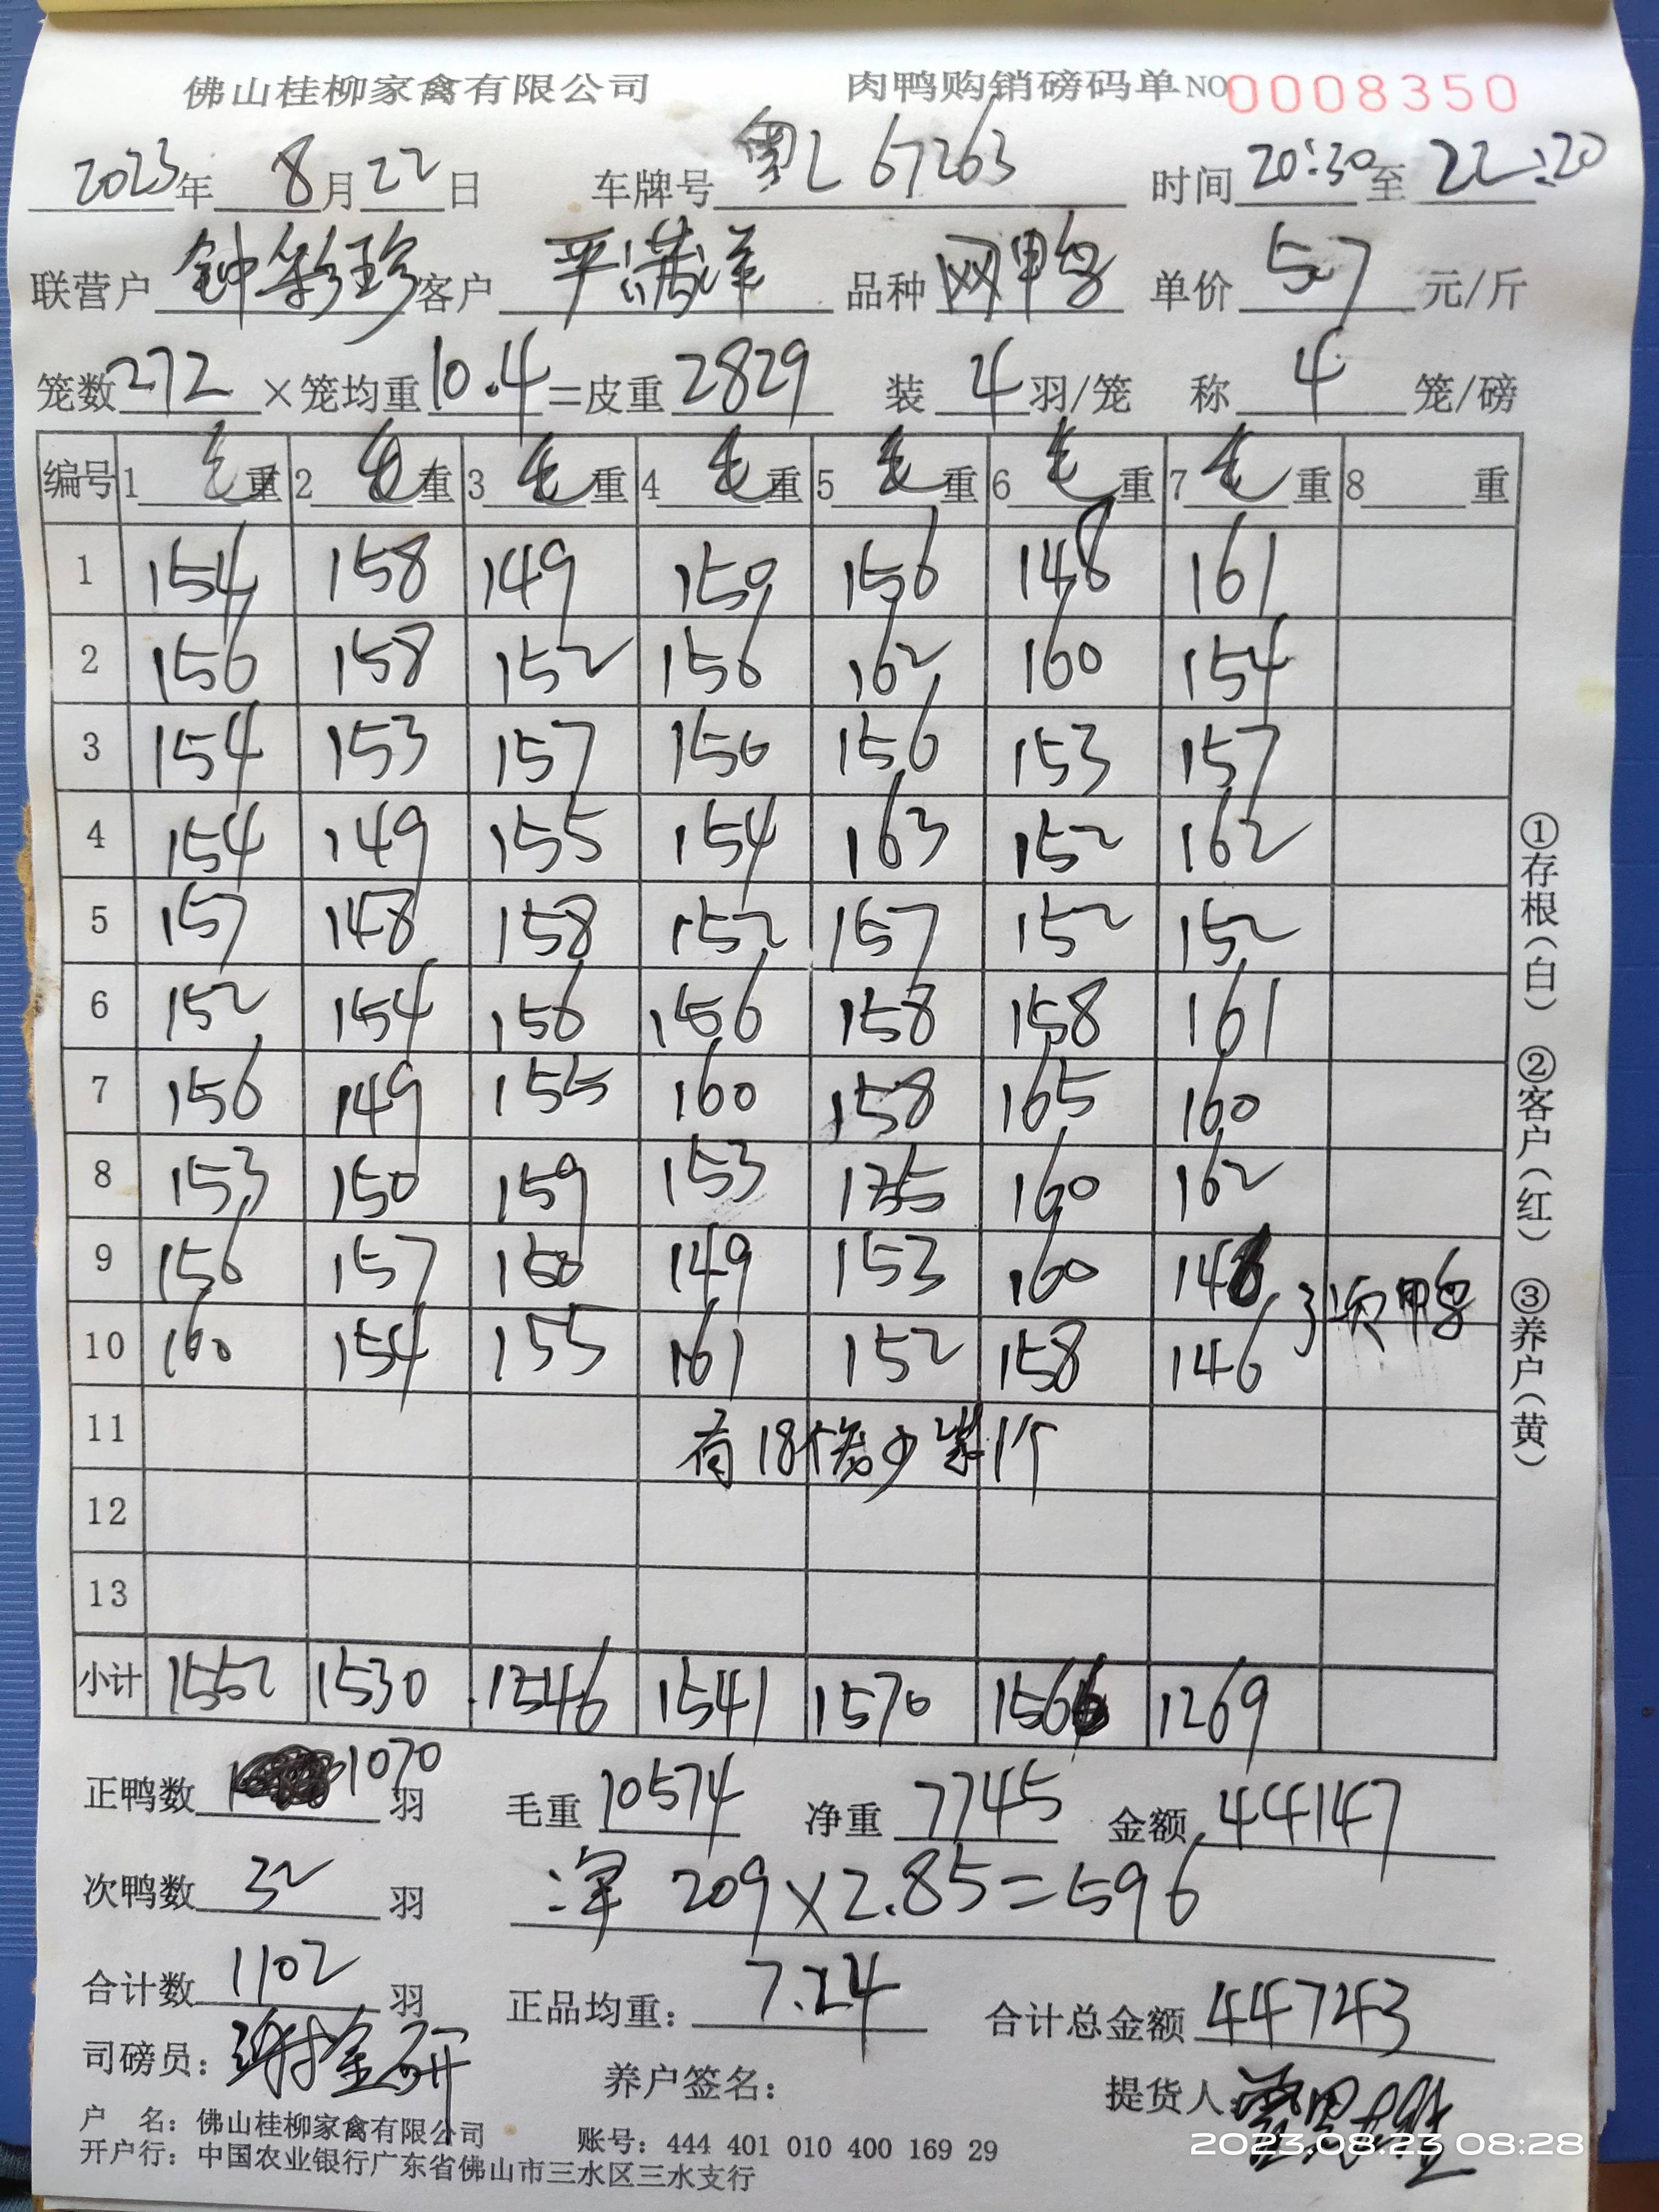 佛山桂柳家禽有限公司 肉鸭购销磅码单 NO 0008350
2023年 8月22日 车牌号 粤L 67263 时间 20:30 至 22:20
联营户 钟彩珍 客户 品种 网鸭 单价 5.7 元/斤
笼数 272 ×笼均重 10.4 =皮重 2829 装 4 羽/笼 称 4 笼/磅
编号 1 毛 重 2 毛 重 3 毛 重 4 毛 重 5 毛 重 6 毛 重 7 毛 重 8 重
1 154 158 149 150 156 148 161
2 156 158 152 156 162 160 154
3 154 153 157 150 156 153 157
4 154 149 155 154 163 152 162
5 157 148 158 152 157 152 152
6 152 154 156 156 158 158 161
7 156 149 155 160 158 165 160
8 153 150 159 153 155 160 162
9 156 157 150 149 153 160 148
10 160 154 155 161 152 158 146 次鸭
11 有18个笼少装1个
12
13
小计 1552 1530 1546 1541 1570 1566 1269
正鸭数 1070 羽 毛重 10574 净重 7745 金额 44147
次鸭数 32 羽 净 209×2.85=596
合计数 1102 羽 正品均重: 7.24 合计总金额 44743
司磅员: 谢金研 养户签名: 提货人:
户 名: 佛山桂柳家禽有限公司 账号: 444 401 010 400 169 29
开户行: 中国农业银行广东省佛山市三水区三水支行
①存根(白) ②客户(红) ③养户(黄)
2023.08.23 08:28